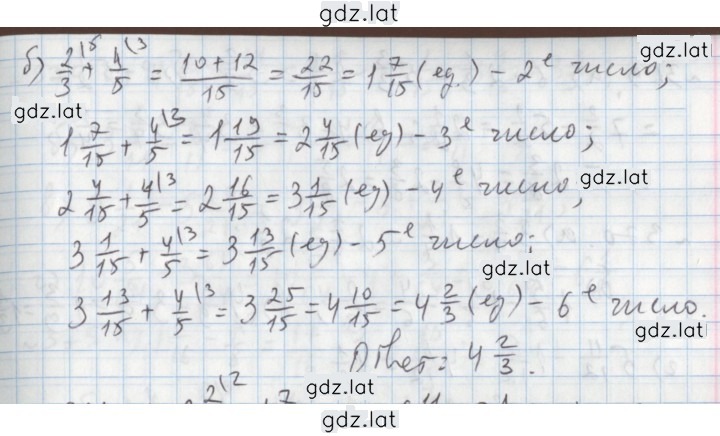 gdz.lat
б) 2/3 \5 + 4/5 \3 = (10+12)/15 = 22/15 = 1 7/15 (ед.) - 2е число;
gdz.lat
gdz.lat
1 7/15 + 4/5 \3 = 1 19/15 = 2 4/15 (ед) - 3е число;
2 4/15 + 4/5 \3 = 2 16/15 = 3 1/15 (ед) - 4е число,
gdz.lat
3 1/15 + 4/5 \3 = 3 13/15 (ед) - 5е число;
gdz.lat
3 13/15 + 4/5 \3 = 3 25/15 = 4 10/15 = 4 2/3 (ед) - 6е число.
gdz.lat
Ответ: 4 2/3.
gdz.lat
gdz.lat